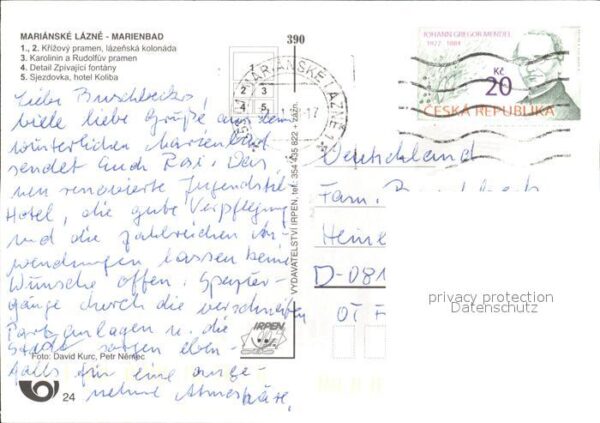 MARIÁNSKÉ LÁZNĚ - MARIENBAD
1., 2. Křížový pramen, lázeňská kolonáda
3. Karolinin a Rudolfův pramen
4. Detail Zpívající fontány
5. Sjezdovka, hotel Koliba
Liebe Buschbecks,
viele liebe Grüße aus dem
winterlichen Marienbad
sendet Euch Rosi. Das
neu renovierte Jugendstil
Hotel, die gute Verpflegung
und die zahlreichen An-
wendungen lassen keine
Wünsche offen. Spazier-
gänge durch die verschneiten
Parkanlagen u. die
Stadt sorgen eben-
falls für eine ange-
nehme Atmosphäre,
Foto: David Kurc, Petr Němec
24
390
1
2 3
4 5
MARIÁNSKÉ LÁZNĚ 1
VYDAVATELSTVÍ IRPEN, tel. 354 435 822 - zázn.
IRPEN
JOHANN GREGOR MENDEL
1822 - 1884
Kč
20
ČESKÁ REPUBLIKA
Deutschland
Fam.
Heine
D-081
OT
privacy protection
Datenschutz